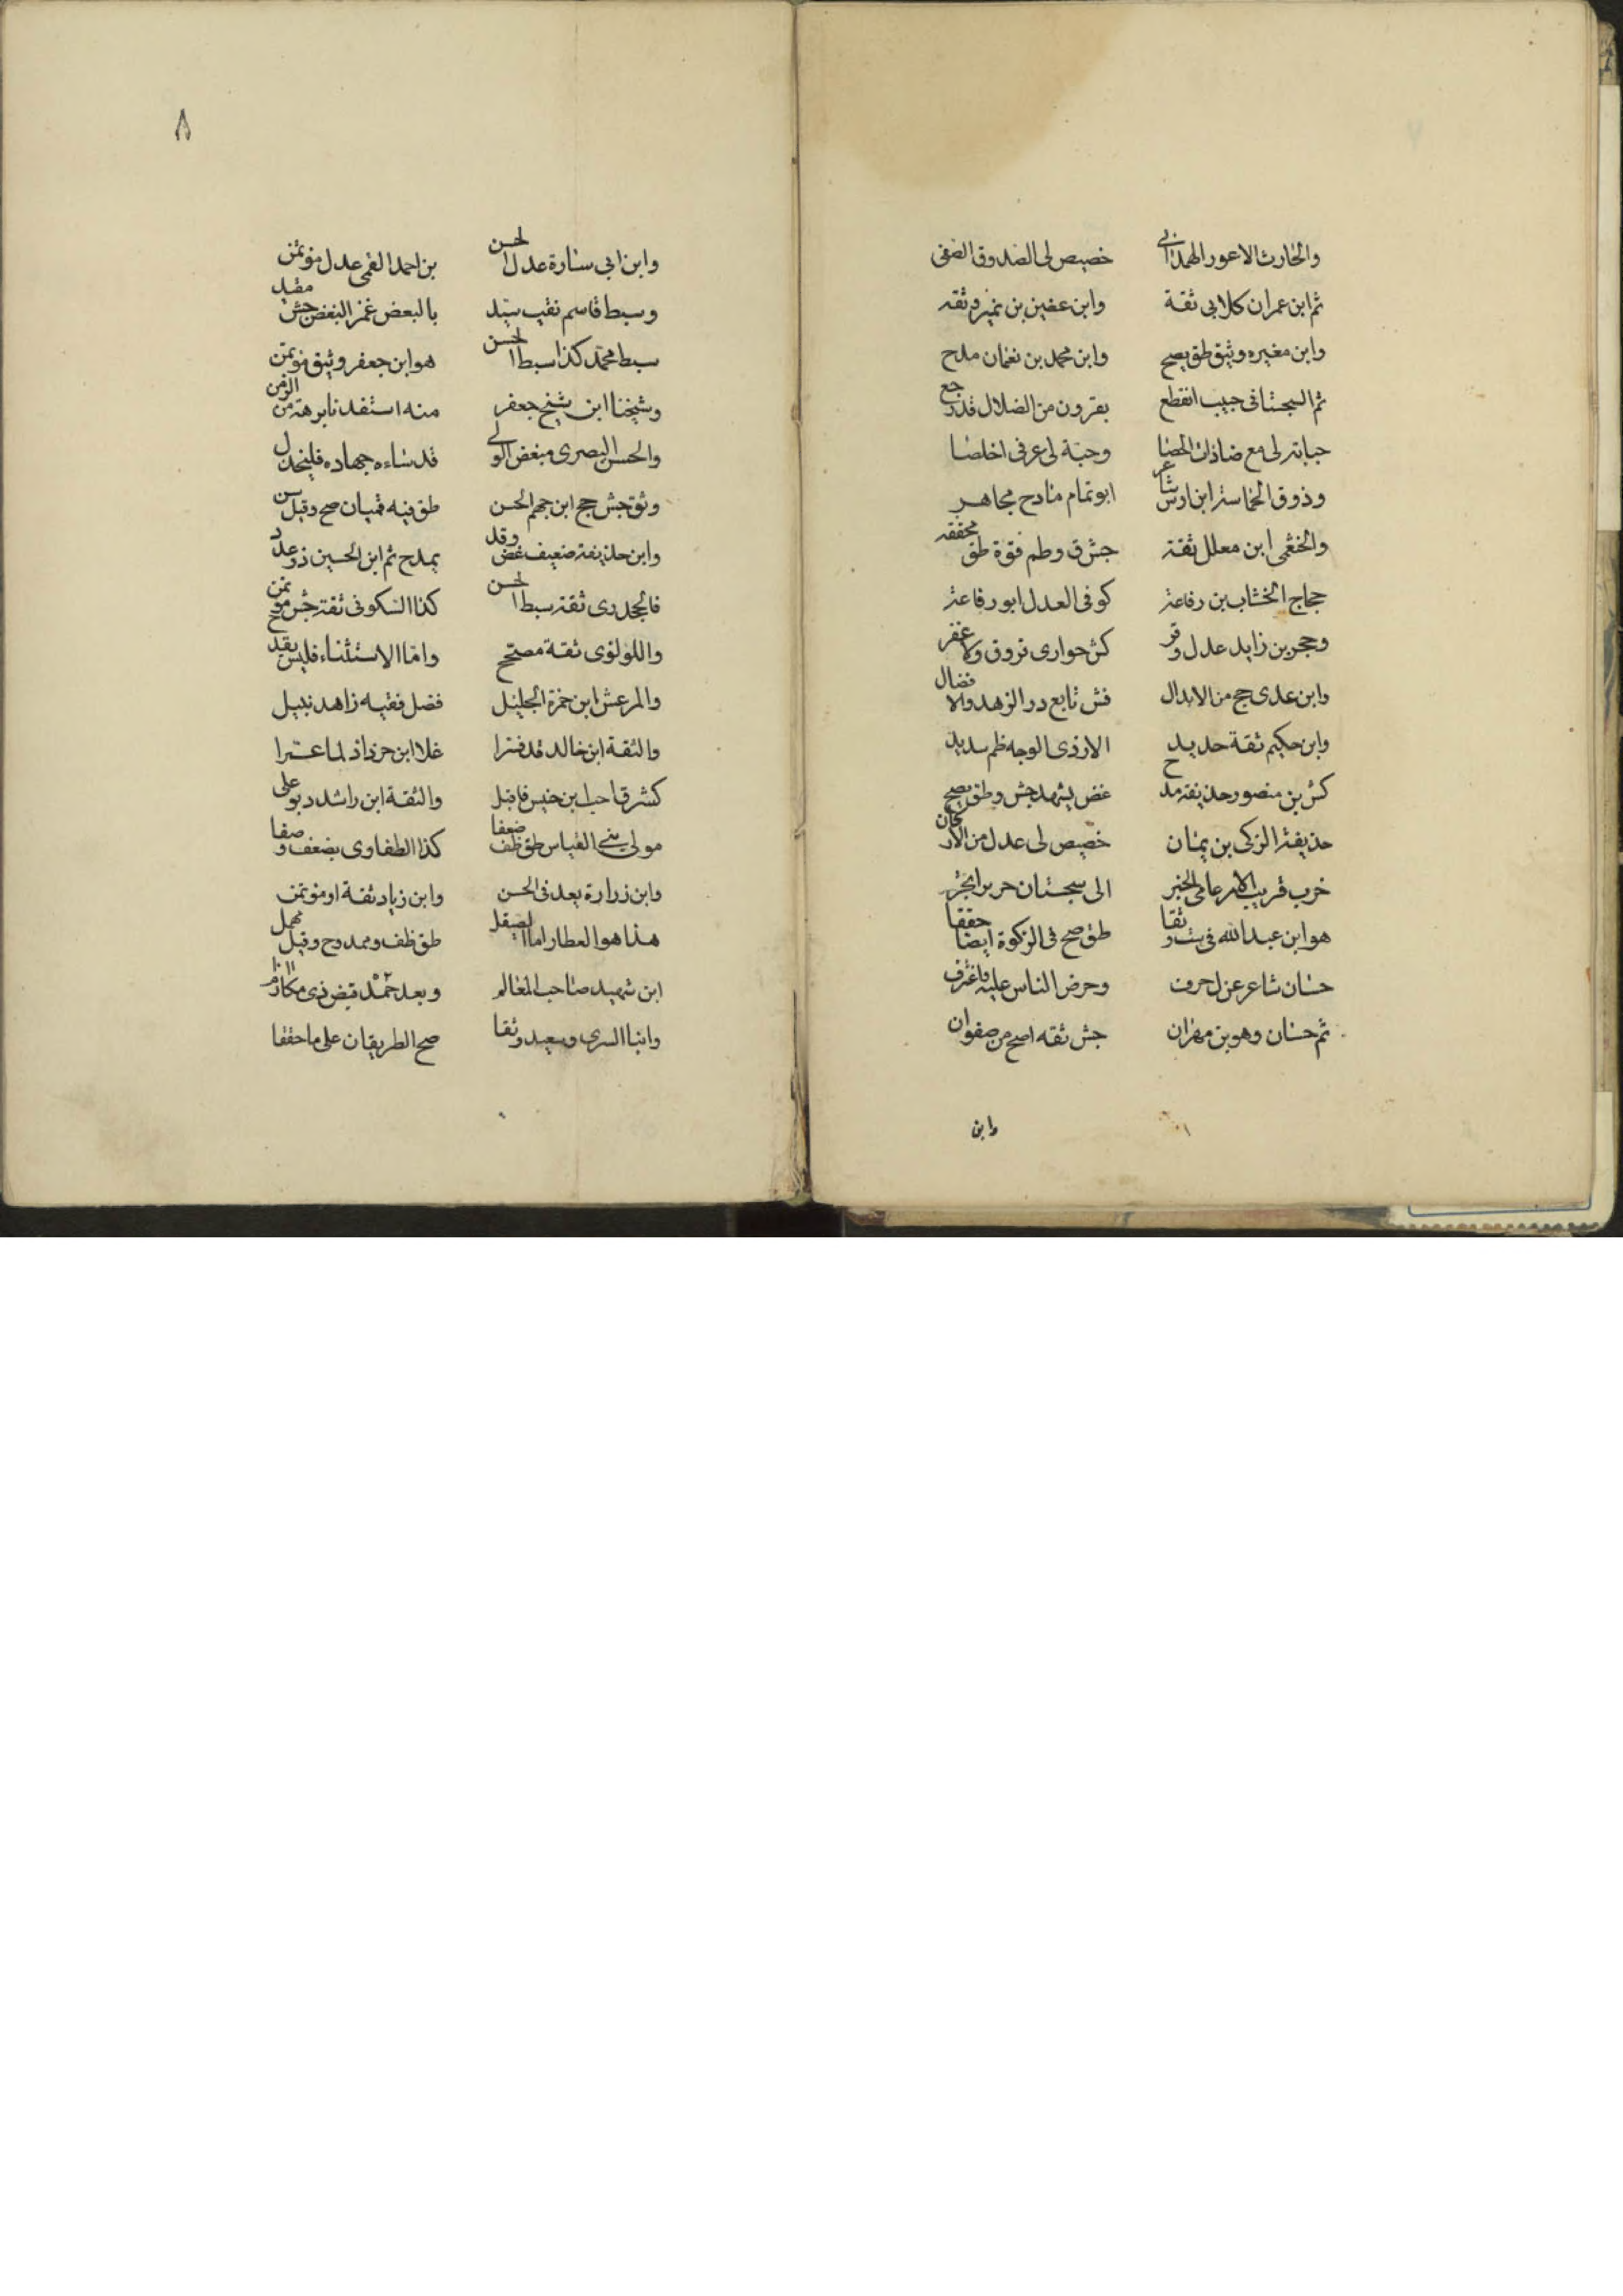 والحارث الاعور الهمداني خصيص لي الصدوق الصفي
ثم ابن عمران كلابي ثقة وابن عضين بن نمير وثقه
وابن مغيره وثيق طق يصح وابن محمد بن نعمان مدح
ثم السجستاني حبيب انقطع بقرون من الضلال قد رجع
حبابة لي مع ضاذات الحصا وحبة لي عرفي اخلصا
وذوق الحماسة ابن اوس شاعر ابو تمام مادح مجاهر
والخثعمي ابن معلل ثقة جش ق وطم فقوة طق محققه
حجاج الخشاب بن رفاعة كوفي العدل ابو رفاعة
وحجر بن زايد عدل وقر كش حواري قر وق ولا غفر
وابن عدي جح من الابدال فش تابع در الزهد والافضال
وابن حكيم ثقة حديد الازدي الوجه ظم سديد
كش بن منصور حذيفة مدح غض يشهد جش وطق يصح
حذيفة الزكي بن يمان خصيص لي عدل من الاركان
خرب قريب الامر عامي الخبر الى سجستان حريز اتجر
هو ابن عبدالله في ست وثقا طق صح في الزكوة ايضا حققا
حسان شاعر عن ل حرف وحرض الناس عليه فاعترف
ثم حسان وهو بن مهران جش ثقه اصح من صفوان
وابن
٨
وابن ابي سارة عدل الحسن بن احمد القمي عدل موتمن
وسبط قاسم نقيب سيد بالبعض غمز البغض جش مقيد
سبط محمد كذا سبط الحسن هو ابن جعفر وثيق موتمن
وشيخنا ابن شيخ جعفر منه استفدنا برهة من الزمن
والحسن البصري مبغض الولي قد شاءه جهاده فليخذل
وثق جش جح ابن جهم الحسن طق فيه فهيان صح وقيل سن
وابن حذيفة ضعيف غض وقد يمدح ثم ابن الحسين ذو عدد
فالجحدري ثقة سبط الحسن كذا السكوني ثقة جش موتمن
واللولوي ثقة مصحح واما الاستثناء فليس يقدح
والمرعش ابن حمزة الجليل فضل فقيه زاهد نبيل
والثقة ابن خالد قد فسرا غلا ابن خرزاذ لما عمرا
كش رقا حبا بن خنيس فاقبل والثقة ابن راشد د بو علي
مولى بني العباس طق ظف ضعفا كذا الطفاوي بضعف وصفا
وابن زرارة يعد في الحسن وابن زياد ثقة او موتمن
هذا هو العطار اما الصيقل طق ظف وممدوح وقيل مهمل
ابن شهيد صاحب المعالم وبعد حمد قبض ذي مكارم
وابنا السري وسعيد وثقا صح الطريقان على ما حققا